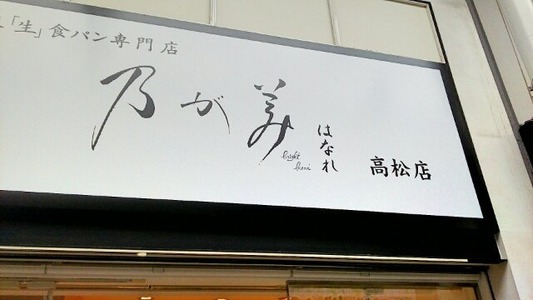 「生」食パン専門店
乃が美
はなれ
高松店